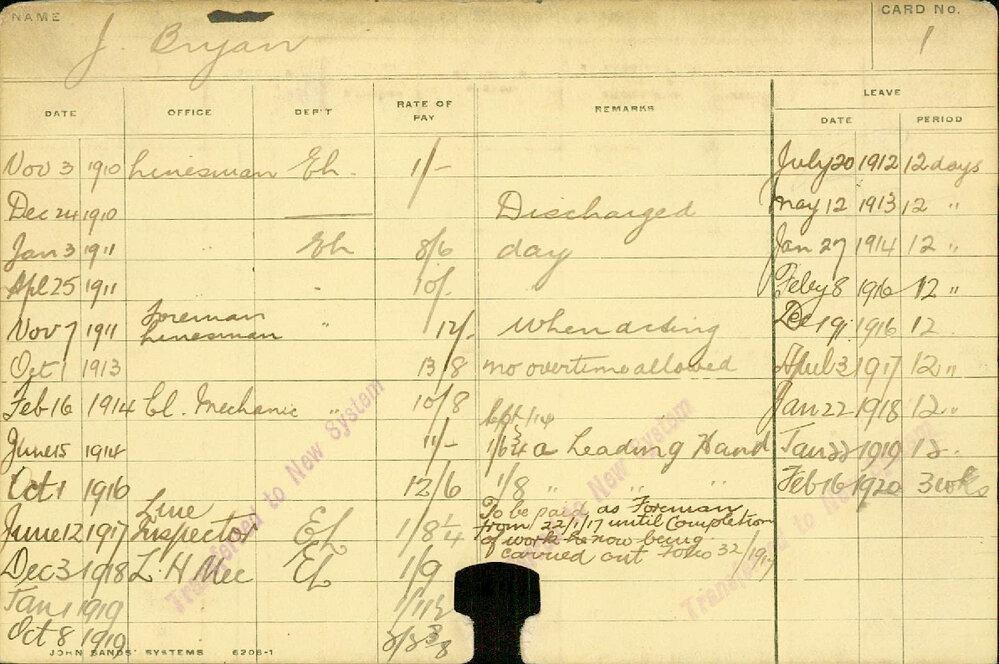 NAME J. Bryan CARD No. 1
DATE OFFICE DEP'T RATE OF PAY REMARKS LEAVE DATE PERIOD
Nov 3 1910 Linesman Eh. 1/- July 20 1912 12 days
Dec 24 1910 Discharged May 12 1913 12 "
Jan 3 1911 Eh 8/6 day Jan 27 1914 12 "
Apl 25 1911 10/- Feby 8 1916 12 "
Foreman
Nov 7 1911 Linesman " 12/- When acting Dec 19 1916 12
Oct 1 1913 13/8 no overtime allowed April 3 1917 12 "
Feb 16 1914 El. Mechanic " 10/8 Sept/14 Jan 22 1918 12 "
June 15 1914 11/- 1/6¾ a Leading Hand Jan 22 1919 12.
Oct 1 1916 12/6 1/8 " " " Feb 16 1920 3 wks
Line To be paid as Foreman
June 12 1917 Inspector El 1/8¼ from 22/1/17 until Completion
of work he now being
Dec 3 1918 L H Mec El 1/9 carried out 32/1917
Jan 1 1919 1/11½
Oct 8 1919
Transferred to New System
Transferred to New System
Transferred to New System
JOHN SANDS' SYSTEMS 6206-1